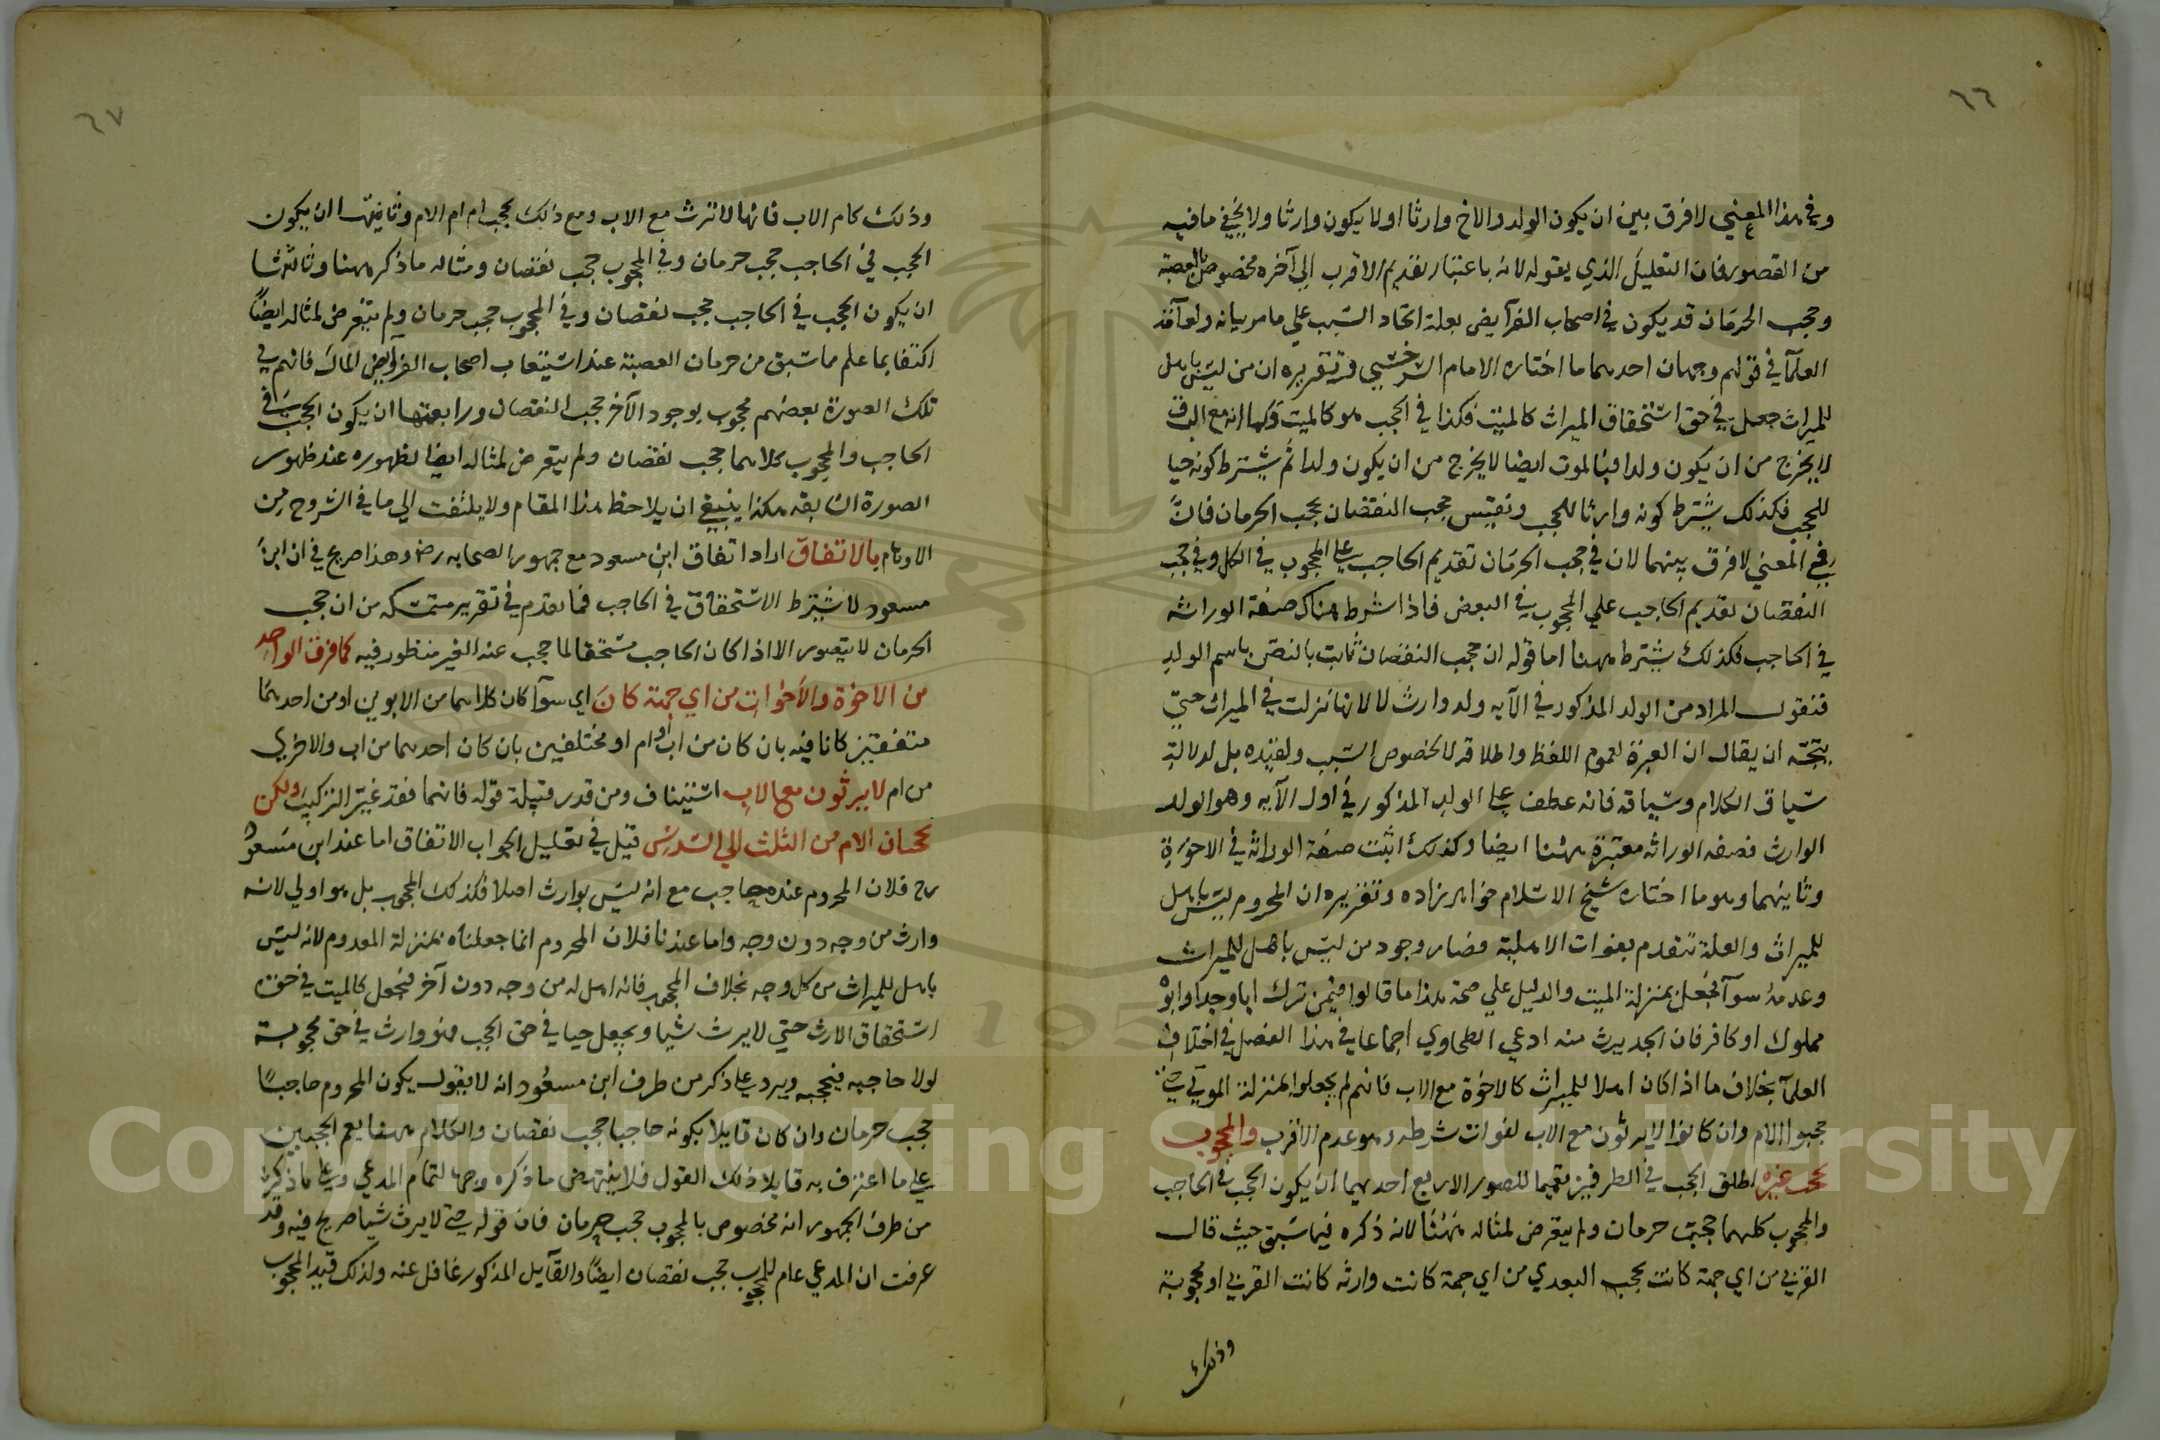 ٦٦
وفي هذا المعني لا فرق بين ان يكون الولد والاخ وارثا او لا يكون وارثا ولا يخفي ما فيه
من القصور فان التعليل الذي يقوله لانه باعتبار تقديم الاقرب الي آخره مخصوص بالعصبة
وحجب الحرمان قد يكون في اصحاب الفرآيض بعلة اتحاد السبب علي ما مر بيانه ولعآمة
العلمآ في قولهم وجهان احدهما ما اختاره الامام السرخسي وتقريره ان من ليس باهل
للميراث جعل في حق استحقاق الميراث كالميت فكذا في الحجب هو كالميت وكما انه مع الرق
لا يخرج من ان يكون ولدا فبالموت ايضا لا يخرج من ان يكون ولدا ثم يشترط كونه حيا
للحجب فكذلك يشترط كونه وارثا للحجب ونقيس حجب النقصان بحجب الحرمان فان
في المعني لا فرق بينهما لان في حجب الحرمان تقديم الحاجب علي المحجوب في الكل وفي حجب
النقصان تقديم الحاجب علي المحجوب في البعض فاذا شرط هناك صفة الوراثه
في الحاجب فكذلك يشترط ههنا اما قوله ان حجب النقصان ثابت بالنص باسم الولد
فنقول المراد من الولد المذكور في الآيه ولد وارث لا لانها نزلت في الميراث حتي
يتجه ان يقال ان العبرة لعموم اللفظ واطلاقه لا لخصوص السبب وتقييده بل لدلالة
سياق الكلام وسياقه فانه عطف علي الولد المذكور في اول الآيه وهو الولد
الوارث فصفه الوراثه معتبرة ههنا ايضا وكذلك اثبت صفة الوراثه في الاخوة
وثانيهما وهو ما اختاره شيخ الاسلام خواهر زاده وتقريره ان المحروم ليس باهل
للميراث والعلة تنعدم بفوات الاهلية فصار وجود من ليس باهل للميراث
وعدمه سوآ فجعل بمنزلة الميت والدليل علي صحة هذا ما قالوا فيمن ترك ابا وجدا وابوه
مملوك او كافر فان الجد يرث منه ادعي الطحاوي اجماعا في هذا الفصل في اختلاف
العلمآ بخلاف ما اذا كان اهلا للميراث كالاخوة مع الاب فانهم لم يجعلوا بمنزلة الموتي حتي
حجبوا الام وان كانوا لا يرثون مع الاب لفوات شرطه وهو عدم الاقرب والمحجوب
يحجب غيره اطلق الحجب في الطرفين تعميما للصور الاربع احديها ان يكون الحجب في الحاجب
والمحجوب كليهما حجب حرمان ولم يتعرض لمثاله ههنا لانه ذكره فيما سبق حيث قال
القربي من اي جهة كانت تحجب البعدي من اي جهة كانت وارثه كانت القربي او محجوبة
وذلك
٦٧
وذلك كام الاب فانها لا ترث مع الاب ومع ذلك تحجب ام ام الام وثانيتها ان يكون
الحجب في الحاجب حجب حرمان وفي المحجوب حجب نقصان ومثاله ما ذكر ههنا وثالثتها
ان يكون الحجب في الحاجب حجب نقصان وفي المحجوب حجب حرمان ولم يتعرض لمثاله ايضا
اكتفا بما علم مما سبق من حرمان العصبة عند استيعاب اصحاب الفرايض المال فانهم في
تلك الصورة بعضهم محجوب بوجود الآخر حجب النقصان ورابعتها ان يكون الحجب في
الحاجب والمحجوب كلاهما حجب نقصان ولم يتعرض لمثاله ايضا لظهوره عند ظهور
الصورة السابقه هكذا ينبغي ان يلاحظ هذا المقام ولا يلتفت الي ما في الشروح من
الاوهام بالاتفاق اراد اتفاق ابن مسعود مع جمهور الصحابه رض وهذا صريح في ان ابن
مسعود لا يشترط الاستحقاق في الحاجب فما تقدم في تقرير متمسكه من ان حجب
الحرمان لا يتصور الا اذا كان الحاجب مستحقا لما حجب عنه الغير منظور فيه كما فوق الواحد
من الاخوة والأخوات من اي جهة كان اي سوآ كان كلاهما من الابوين او من احدهما
متفقين كانا فيه بان كان من اب او ام او مختلفين بان كان احدهما من اب والاخري
من ام لا يرثون مع الاب استيناف ومن قدر قبله قوله فانهما فقد غير التركيب ولكن
يحجبان الام من الثلث الي السدس قيل في تعليل الجواب الاتفاق اما عند ابن مسعود
رح فلان المحروم عنده حاجب مع انه ليس بوارث اصلا فكذلك المحجوب بل هو اولي لانه
وارث من وجه دون وجه واما عندنا فلان المحروم انما جعلناه بمنزلة المعدوم لانه ليس
باهل للميراث من كل وجه بخلاف المحجوب فانه اهل له من وجه دون آخر فيجعل كالميت في حق
استحقاق الارث حتي لا يرث شيا ويجعل حيا في حق الحجب فهو وارث في حق محجوبه
لولا حاجبه فيحجبه ويرد علي ما ذكر من طرف ابن مسعود انه لا يقول يكون المحروم حاجبا
حجب حرمان وان كان قايلا بكونه حاجبا حجب نقصان والكلام ههنا يعم الحجبين
علي ما اعترف به قايلا ذلك القول فلا ينتهض ما ذكره وجها لتمام المدعي وعلي ما ذكر
من طرف الجمهور انه مخصوص بالمحجوب حجب حرمان فان قوله حتي لا يرث شيا صريح فيه وقد
عرفت ان المدعي عام للمحجوب حجب نقصان ايضا والقآيل المذكور غافل عنه ولذلك قيد المحجوب
Copyright © King Saud University
195